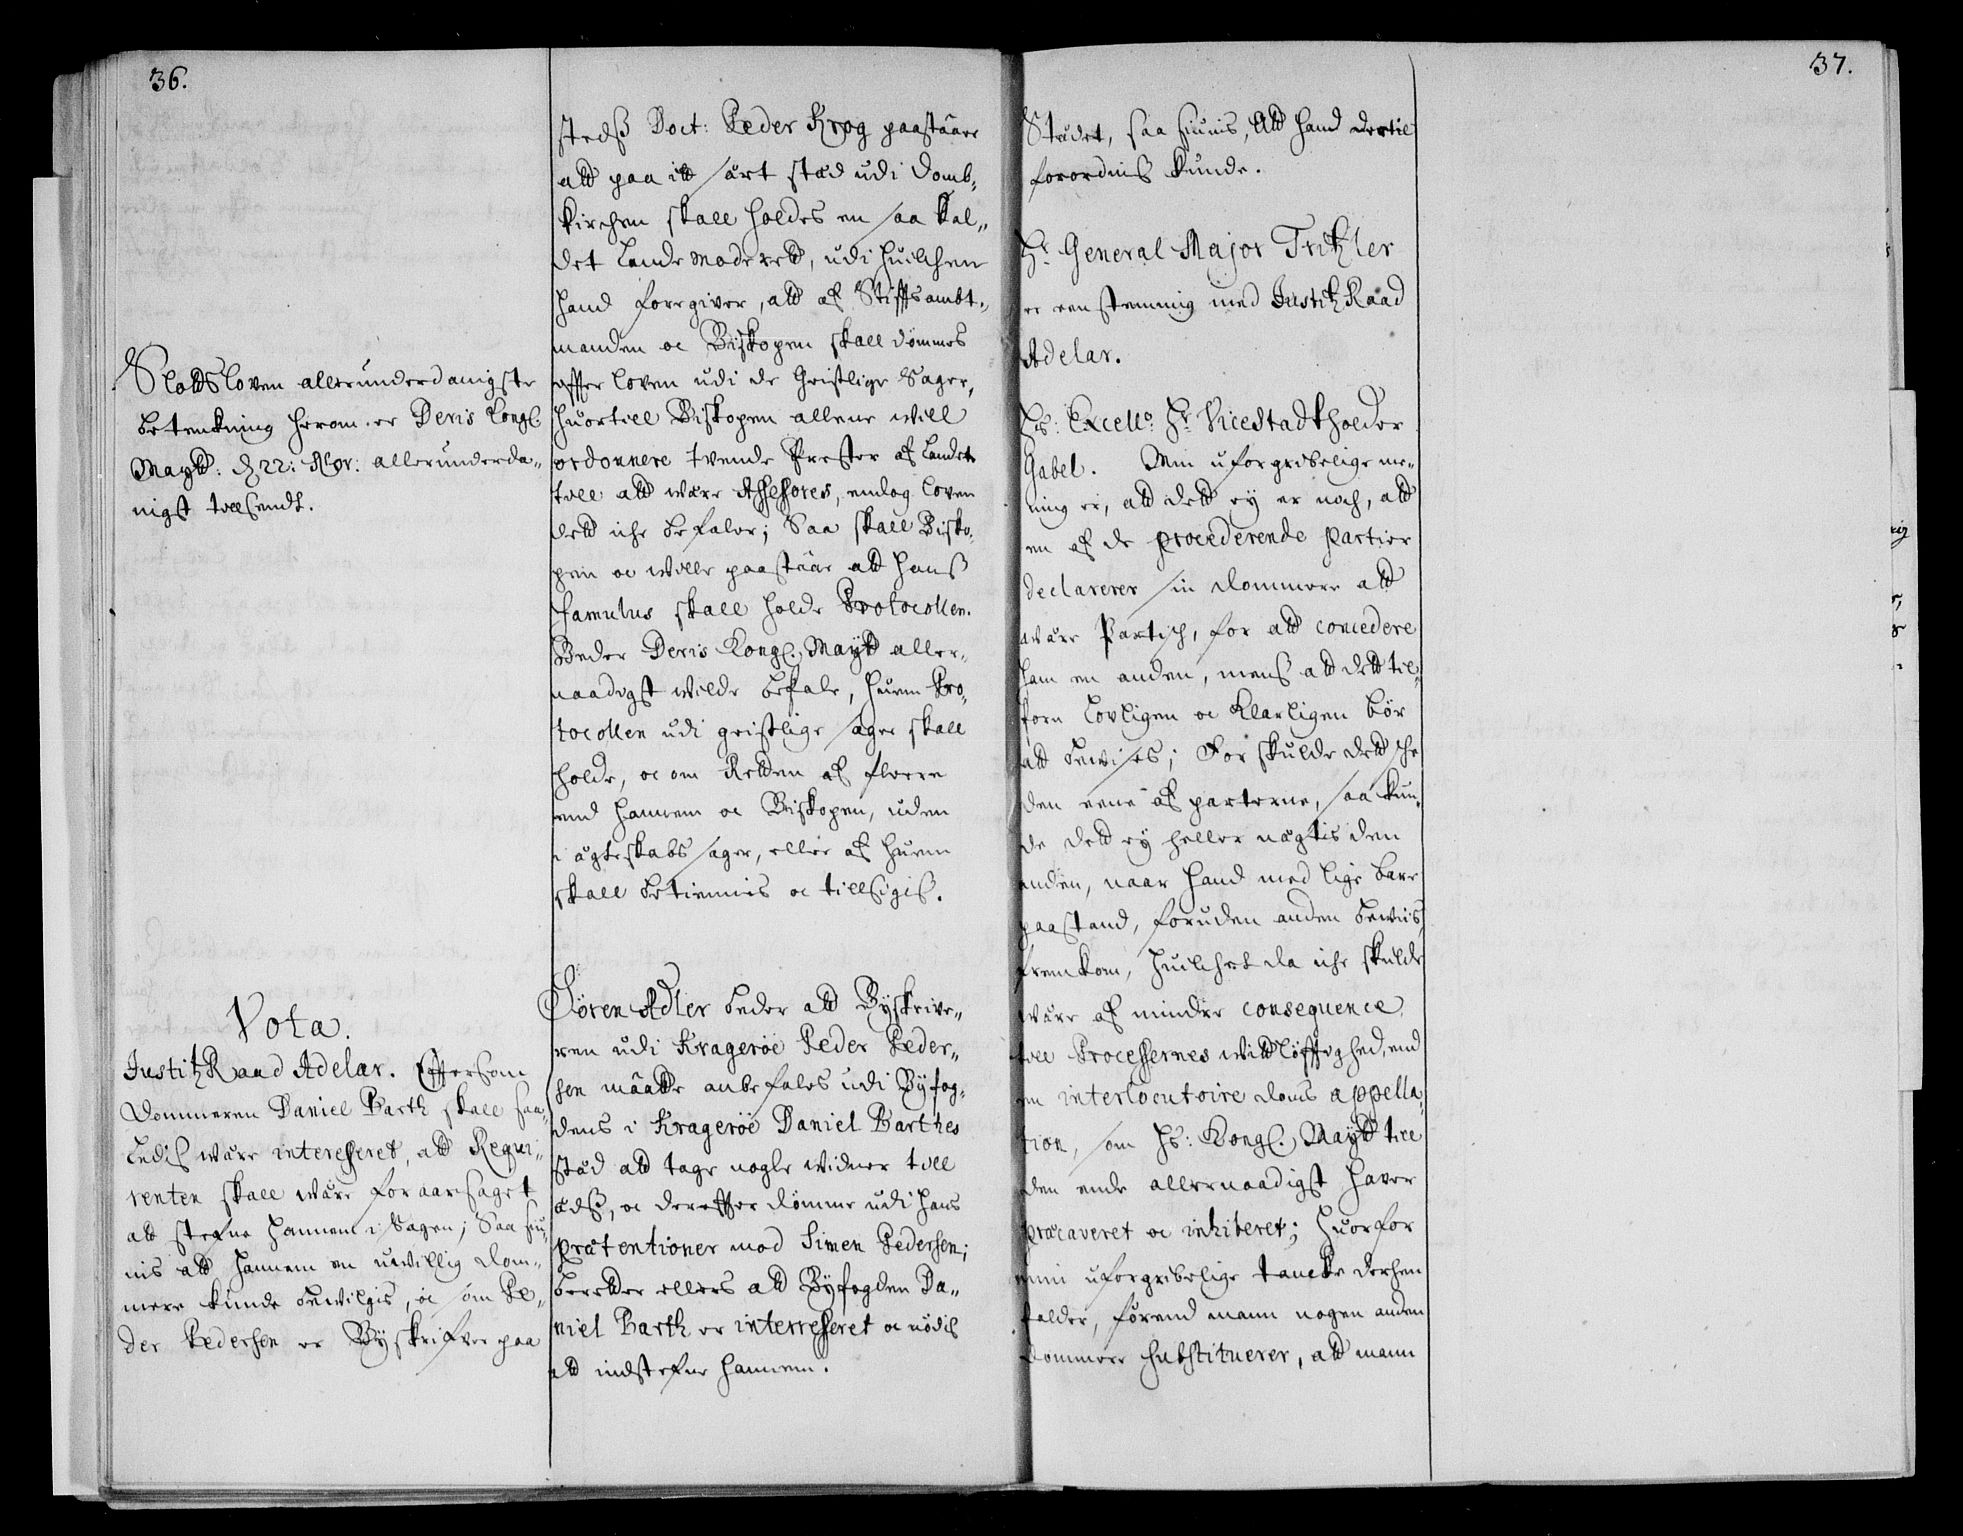 36.
Slottsloven allerunderdanigste
betenkning herom er Deris Kongl.
Maytt: d 22: Nov: allerunderda-
nigst tilsendt.
Vota.
Justitz Raad Adelar. Effter som
Dommeren Daniel Barth skall saa-
ledis være interesseret, att Requi-
renten skall være foraarsaget
att stefne hannem i Sagen; Saa siu-
nis att hannem en uwillig Dom-
mere kunde bewilgis, oc som Pe-
der Pedersen er Byskrifver paa
stedß Doct: Peder Krog paastaaer
att paa itt sært stæd udi Domb-
kirchen skall holdes en saa kal-
det Landemode rett, udi huilchen
hand foregiver, att af Stifftsambt-
manden oc Biskopen skall dømmes
effter loven udi de Geistlige Sager,
huortill Biskopen allene will
ordonnere tvende Prester af Landet
till att være Assessores, endog loven
dett iche befaler; Saa skall Bisko-
pen oc wille paastaae att hanß
famulus skall holde Protocollen.
Beder Deris Kongl. Maytt aller-
naadigst wilde befale, huem Pro-
tocollen udi geistlige sager skall
holde, oc om Retten af fleere
end hannem oc Biskopen, uden
i ægteskabs sager, eller af huem
skall betiennis oc tillsigiß.
Søren Adler beder att Byskrive-
ren udi Kragerøe Peder Peder-
sen maatte anbefales udi Byfog-
dens i Kragerøe Daniel Barthes
stæd att tage nogle widner till
ædß, oc dereffter dømme udi hans
prætentioner mod Simen Pedersen;
beretter ellers att Byfogden Da-
niel Barth er interresseret oc nødis
att indstefne hannem.
37.
Stædet, saa siunis, Att hand dertil
forordniß kunde.
Hr. General Major Tritzler
er eenstemmig med Justitz Raad
Adelar.
Hs: Excell: Hr Vicestadtholder
Gabel. Min uforgribelige me-
ning er, att dett ey er noch, att
en af de procederende Partier
declarerer sin dommere att
være Partisch, for att concedere
ham en anden, mens att dett til-
forn lovligen oc klarligen bør
att bewises; For skulde dett sche
den eene af parterne, saa kun-
de dett ey heller nægtis den
anden, naar hand med lige bare
paastand, foruden anden bewiis,
fremkom, huilchet da iche skulde
være af mindre consequence
till Processernes Wittløfftighed, end
en interlocutoire doms appella-
tion, som Hs: Kongl. Maytt till
den ende allernaadigst haver
præcaveret oc inhiberet; huorfor
min uforgribelige tancke derhen
falder, førend mann nogen anden
Dommere substituerer, att mann